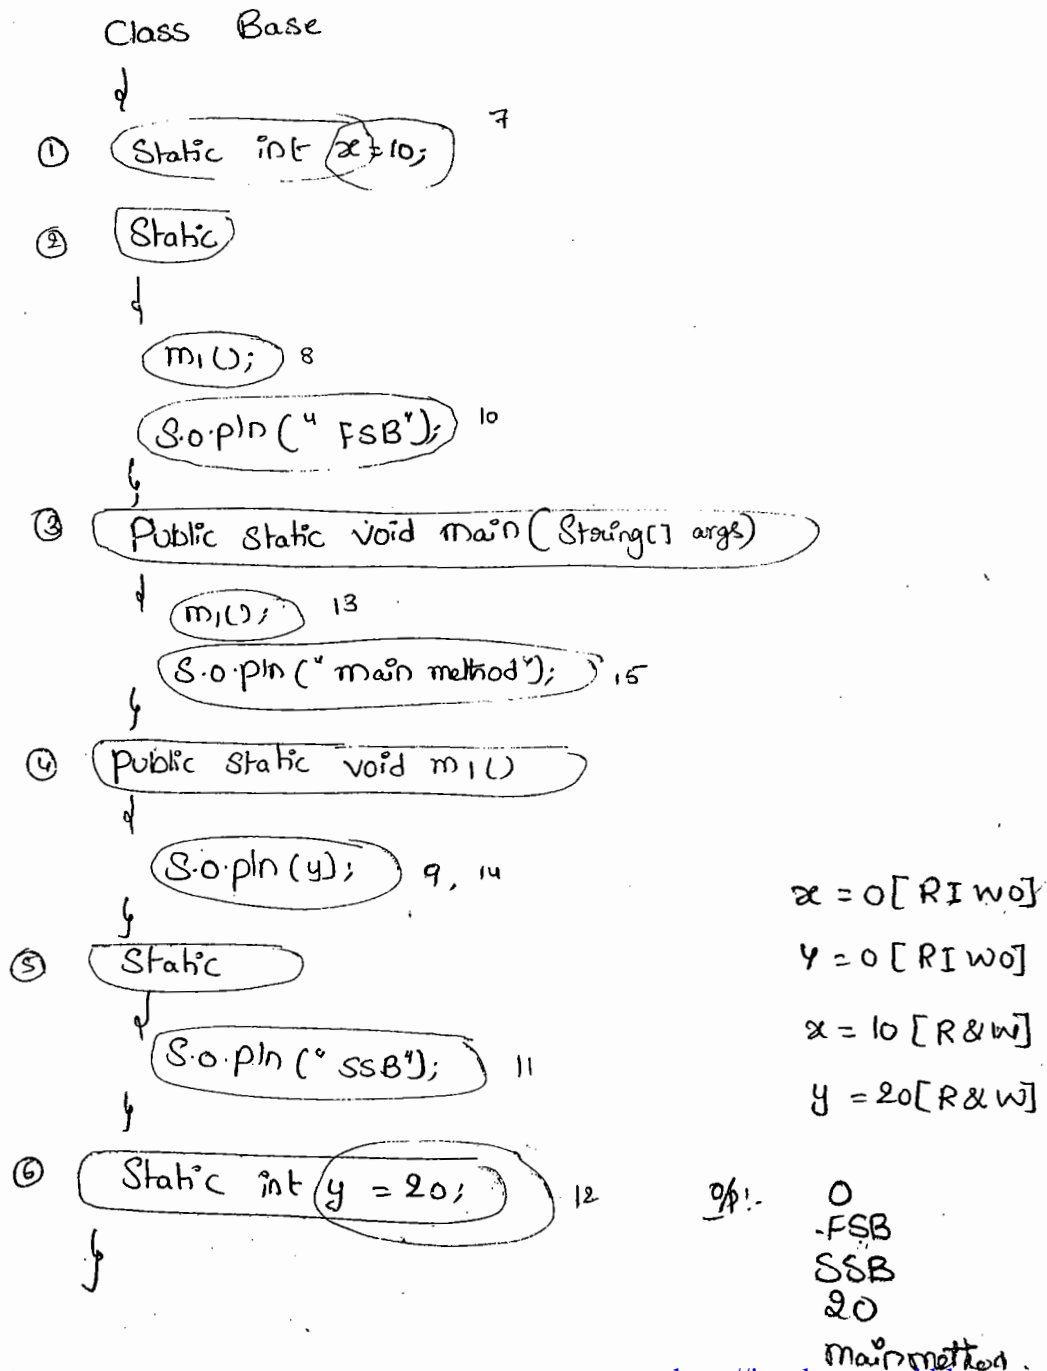 Class Base
{
① Static int x=10; 7
② Static
{
m1(); 8
S.o.pln("FSB"); 10
}
③ Public static void main(String[] args)
{
m1(); 13
S.o.pln("main method"); 15
}
④ public static void m1()
{
S.o.pln(y); 9, 14
}
⑤ Static
{
S.o.pln("SSB"); 11
}
⑥ Static int y = 20; 12
}
x = 0 [RIWO]
y = 0 [RIWO]
x = 10 [R&W]
y = 20 [R&W]
O/p:-
0
FSB
SSB
20
main method.